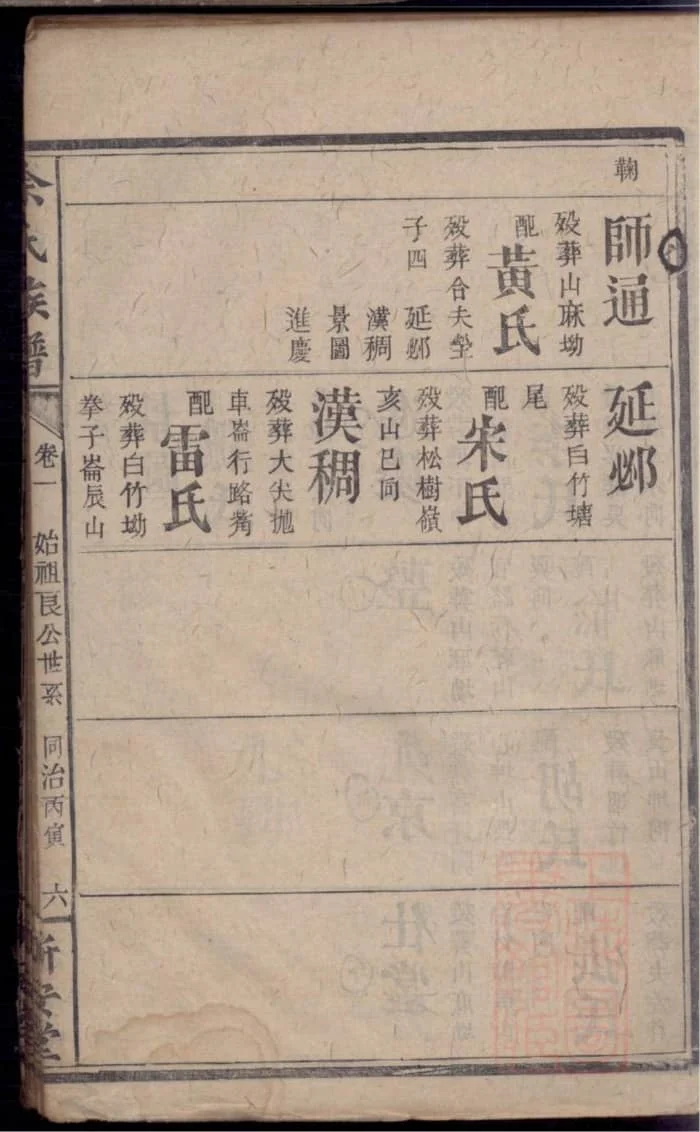 鞠
師通
歿葬山麻坳
配
黃氏
歿葬合夫塋
子四
延邺
漢稠
景圖
進慶
延邺
歿葬白竹塘
尾
配
宋氏
歿葬松樹嶺
亥山巳向
漢稠
歿葬大尖抛
車崙行路觜
配
雷氏
歿葬白竹坳
拳子崙辰山
余氏族譜
卷一
始祖良公世系
同治丙寅
六
新安堂